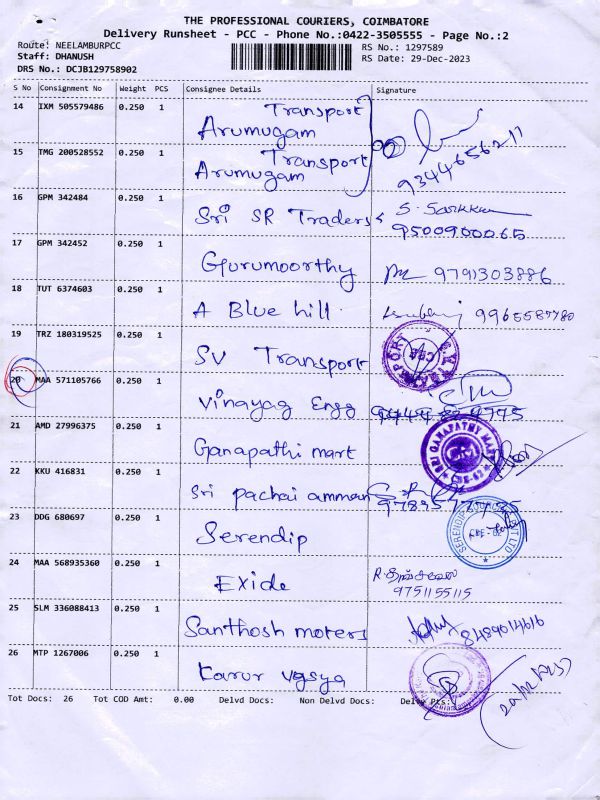 THE PROFESSIONAL COURIERS, COIMBATORE
Delivery Runsheet - PCC - Phone No.:0422-3505555 - Page No.:2
Route: NEELAMBURPCC
RS No.: 1297589
Staff: DHANUSH
RS Date: 29-Dec-2023
DRS No.: DCJB129758902
S No Consignment No Weight PCS Consignee Details Signature
14 IXM 505579486 0.250 1 Transport
Arumugam
15 TMG 200528552 0.250 1 Transport
Arumugam 9344656211
16 GPM 342484 0.250 1 Sri SR Traders
9500900065
17 GPM 342452 0.250 1 Gurumoorthy 9791303886
18 TUT 6374603 0.250 1 A Blue hill 9965587780
19 TRZ 180319525 0.250 1 SV Transport
20 MAA 571105766 0.250 1 Vinayag Engg
21 AMD 27996375 0.250 1 Ganapathi mart
22 KKU 416831 0.250 1 Sri pachai amman
23 DDG 680697 0.250 1 Serendip
24 MAA 568935360 0.250 1 Exide
9751155115
25 SLM 336088413 0.250 1 Santhosh moters 8489014616
26 MTP 1267006 0.250 1 Karur vysya
Tot Docs: 26 Tot COD Amt: 0.00 Delvd Docs: Non Delvd Docs: Delvy Pts: